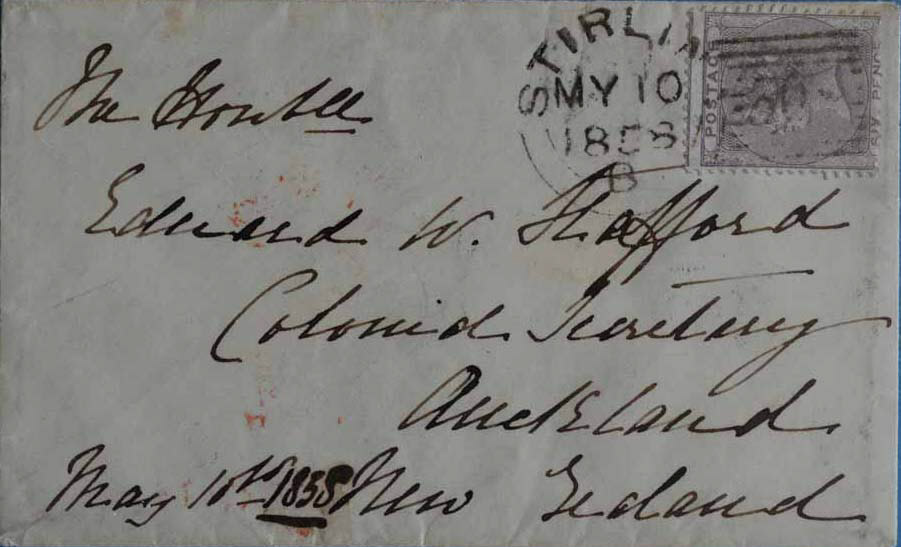 STIRLIN
MY 10
1858
B
POSTAGE
SIX PENCE
The Honble
Edward W. Stafford
Colonial Secretary
Auckland
May 10th 1858 New Zealand